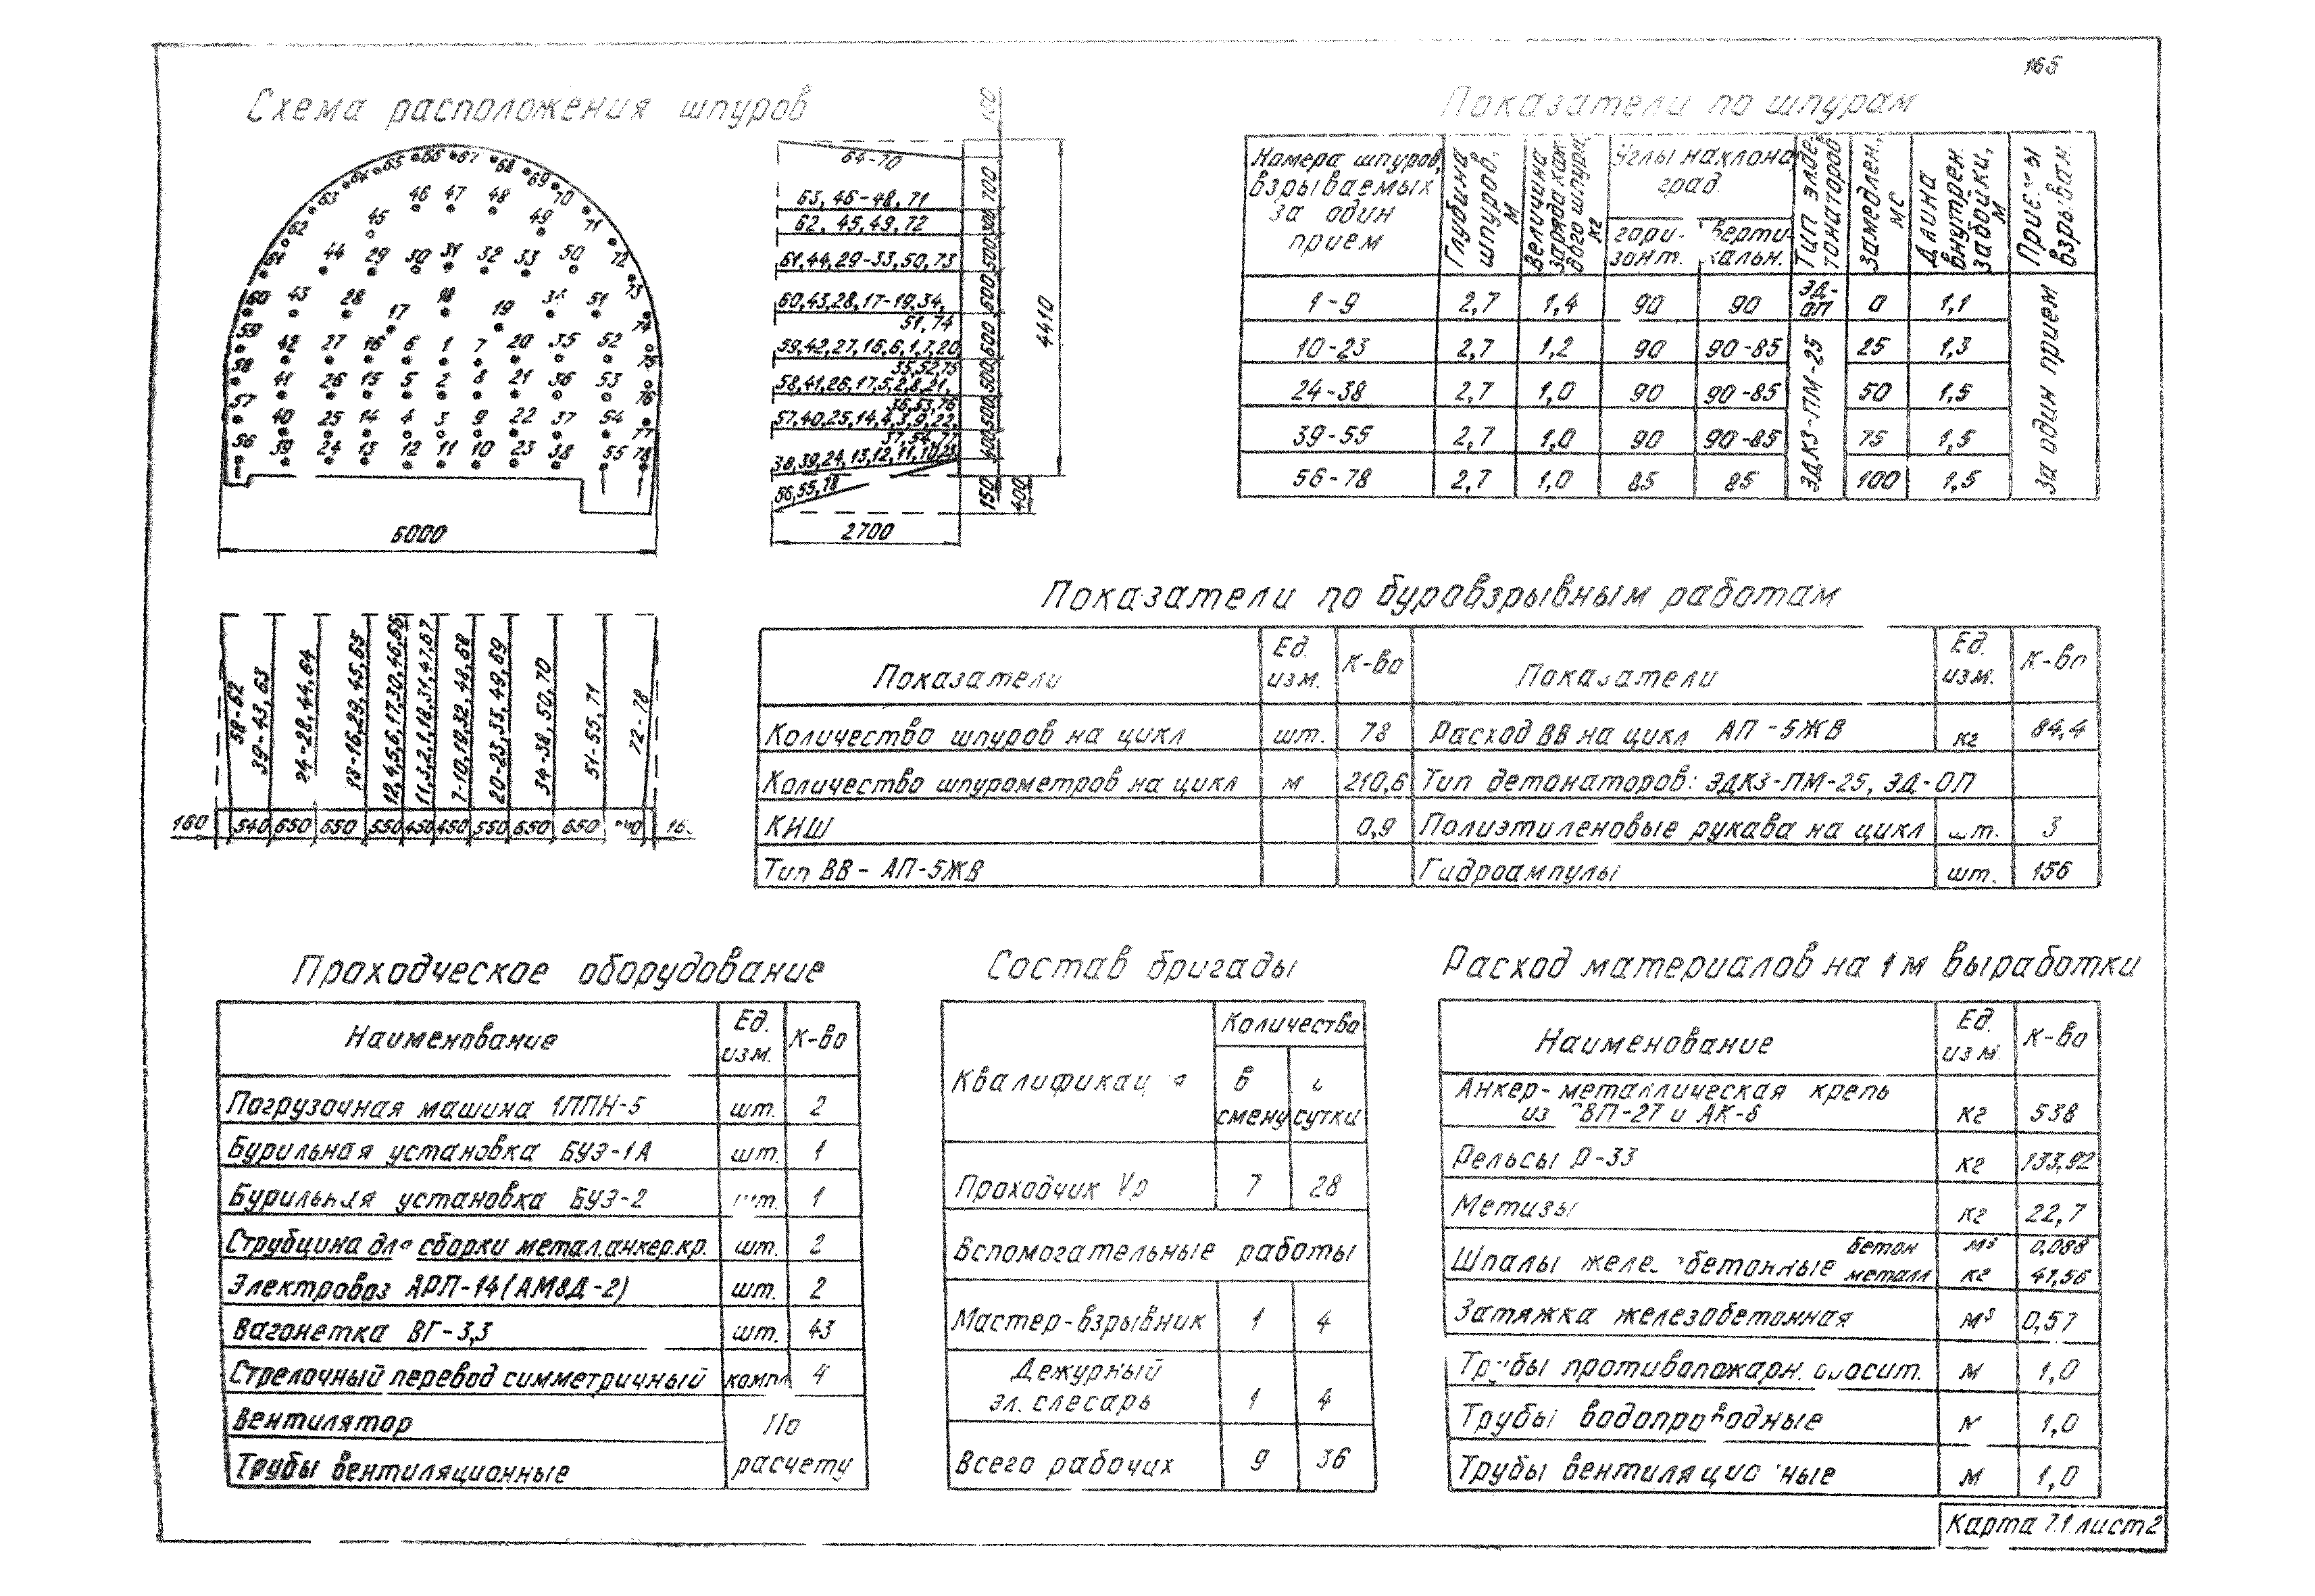 165
Схема расположения шпуров
64-70
63, 46-48, 71
62, 45, 49, 72
61, 44, 29-33, 50, 73
60, 43, 28, 17-19, 34,
51, 74
59, 42, 27, 16, 6, 1, 7, 20
35, 52, 75
58, 41, 26, 17, 5, 2, 8, 21,
36, 53, 76
57, 40, 25, 14, 4, 3, 9, 22,
37, 54, 77
38, 39, 24, 13, 12, 11, 10, 23
56, 55, 78
700
500
600
600
500
500
400
150
400
4410
2700
5000
62 63 64 65 66 67 68 69 70
46 47 48
45 49 71
61 44 29 30 31 32 33 50 72
60 43 28 17 18 19 34 51 73
59 42 27 16 6 1 7 20 35 52 74
58 41 26 15 5 2 8 21 36 53 75
57 40 25 14 4 3 9 22 37 54 76
56 39 24 13 12 11 10 23 38 55 77 78
58-62
39-43, 63
24-28, 44, 64
13-16, 29, 45, 65
12, 4, 5, 6, 17, 30, 46, 66
11, 3, 2, 1, 18, 31, 47, 67
7-10, 19, 32, 48, 68
20-23, 33, 49, 69
34-38, 50, 70
51-55, 71
72-78
160 540 650 650 550 450 450 550 650 650
Показатели по шпурам
Номера шпуров, взрываемых за один прием
Глубина шпуров, м
Величина заряда каждого шпура, кг
Углы наклона, град.
гори- зонт.
верти- кальн.
Тип элде- тонаторов
Замедлен, мс
Длина внутрен. забойки, м
Приемы взрыван.
1-9 2,7 1,4 90 90 ЭД-ОП 0 1,1
10-23 2,7 1,2 90 90-85 25 1,3
24-38 2,7 1,0 90 90-85 50 1,5
39-55 2,7 1,0 90 90-85 75 1,5
56-78 2,7 1,0 85 85 100 1,5
ЭДКЗ-ПМ-25
За один прием
Показатели по буровзрывным работам
Показатели Ед. изм. К-во Показатели Ед. изм. К-во
Количество шпуров на цикл шт. 78 Расход ВВ на цикл АП-5ЖВ кг 84,4
Количество шпурометров на цикл м 210,6 Тип детонаторов: ЭДКЗ-ПМ-25, ЭД-ОП
КИШ 0,9 Полиэтиленовые рукава на цикл шт. 3
Тип ВВ - АП-5ЖВ Гидроампулы шт. 156
Проходческое оборудование
Наименование Ед. изм. К-во
Погрузочная машина 1ППН-5 шт. 2
Бурильная установка БУЭ-1А шт. 1
Бурильная установка БУЭ-2 шт. 1
Струбцина для сборки метал.анкер.кр. шт. 2
Электровоз АРП-14(АМ8Д-2) шт. 2
Вагонетка ВГ-3,3 шт. 43
Стрелочный перевод симметричный компл 4
Вентилятор По
Трубы вентиляционные расчету
Состав бригады
Квалификация Количество
в смену сутки
Проходчик Vр 7 28
Вспомогательные работы
Мастер-взрывник 1 4
Дежурный
эл. слесарь 1 4
Всего рабочих 9 36
Расход материалов на 1 м выработки
Наименование Ед. изм. К-во
Анкер-металлическая крепь
из СВП-27 и АК-8 кг 538
Рельсы Р-33 кг 133,92
Метизы кг 22,7
Шпалы железобетонные бетон м³ 0,088
металл кг 41,56
Затяжка железобетонная м³ 0,57
Трубы противопожарн. оросит. м 1,0
Трубы водопроводные м 1,0
Трубы вентиляционные м 1,0
Карта 7.1 лист 2